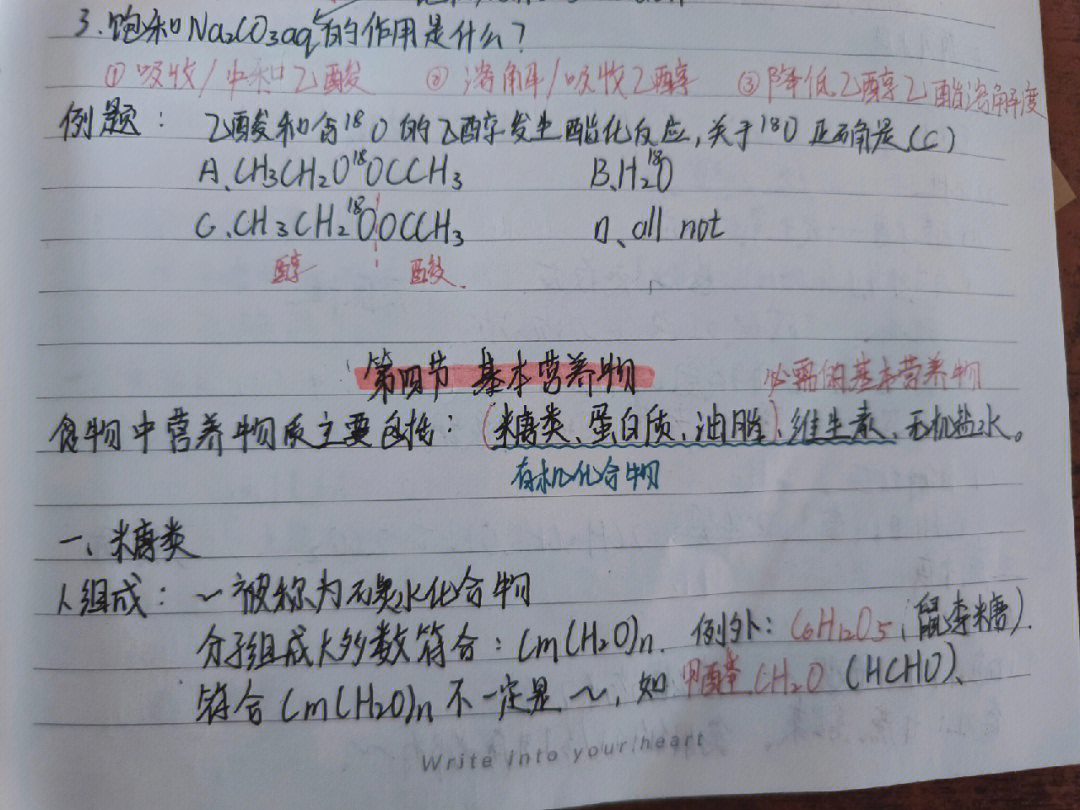 3.饱和Na2CO3aq的作用是什么?
①吸收/中和乙酸 ②溶解/吸收乙醇 ③降低乙醇乙酯溶解度
例题: 乙酸和含18O的乙醇发生酯化反应,关于18O正确是(C)
A、CH3CH2O18OCCH3 B、H218O
C、CH3CH218OOCCH3 D、all not
醇 酸
第四节 基本营养物 必需的基本营养物
食物中营养物质主要包括:(糖类、蛋白质、油脂)、维生素、无机盐、水。
有机化合物
一、糖类
1.组成: ~被称为碳水化合物
分子组成大多数符合:Cm(H2O)n. 例外:C6H12O5(鼠李糖).
符合Cm(H2O)n不一定是~,如甲醛CH2O(HCHO)、
Write into your heart